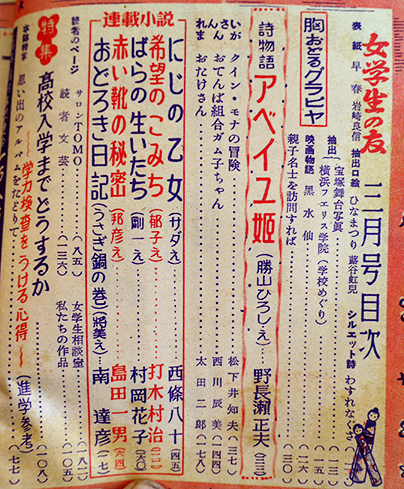 女学生の友 三月号目次
表紙 早春 岩崎良信
抽出口絵 ひなまつり 蕗谷虹児
シルエット詩 わすれなぐさ
胸おどるグラビヤ
抽出 宝塚舞台写真
横浜フェリス学院(学校めぐり)
映画物語 黒水仙
親子名士を訪問すれば
詩物語 アベイユ姫 (勝山ひろし・え) 野長瀬正夫 (三三)
クイン・モナの冒険 松下井知夫 (三七)
おてんば組合ガム子ちゃん 西川辰美 (四四)
おたけさん 太田二郎 (七八)
連載小説
にじの乙女 (サダえ) 西條八十 (四五)
希望のこみち (郁子え) 打木村治 (二二)
ばらの生いたち (剛一え) 村岡花子 (六〇)
赤い靴の秘密 (邦彦え) 島田一男 (六四)
おどろき日記 (うさぎ鍋の巻) (将美え) 南達彦 (一七)
読者のページ
サロンTOMO (八五)
読者文芸 (一三六)
女学生相談室
私たちの作品
特集 高校入学までどうするか (一〇八)
〜学力検査をうける心得〜 (進学参考) (七七)
思い出のアルバムをたどりて